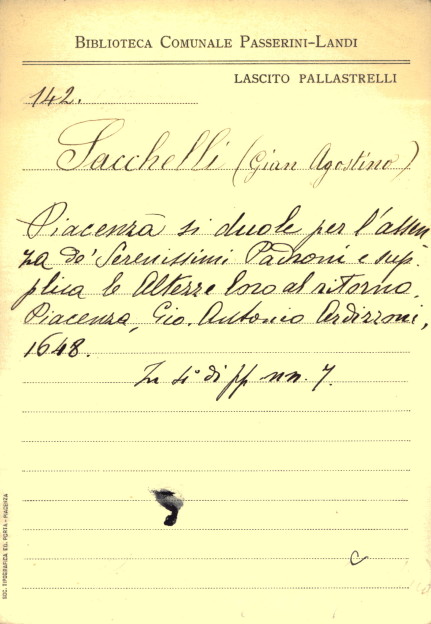 BIBLIOTECA COMUNALE PASSERINI-LANDI
LASCITO PALLASTRELLI
142.
Sacchelli (Gian Agostino)
Piacenza si duole per l'assen
za de' Serenissimi Padroni e sup=
plica le Altezze loro al ritorno.
Piacenza, Gio. Antonio Ardizzoni,
1648.
In 4° di pp nn. 7.
c
SOC. TIPOGRAFICA ED. PORTA - PIACENZA